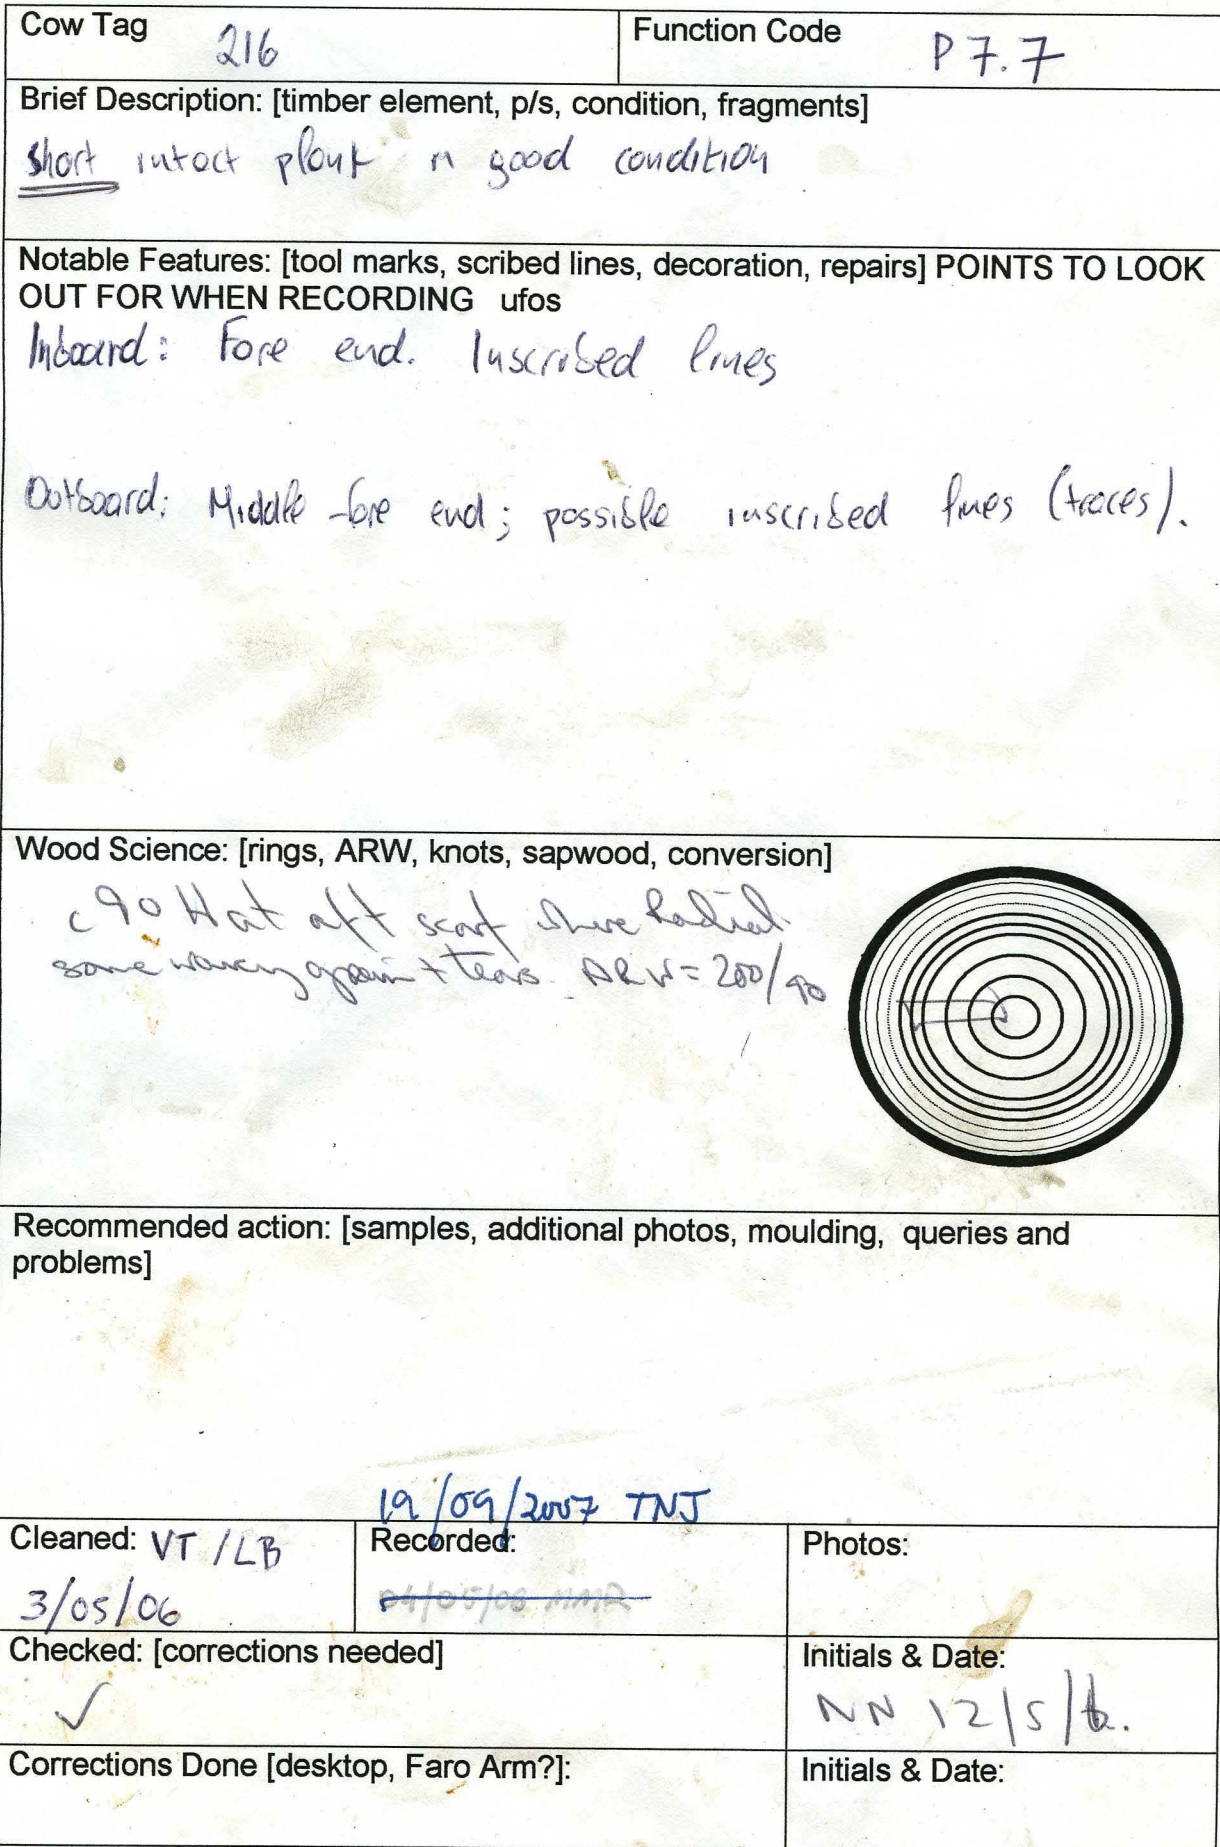 Cow Tag 216
Function Code P7.7
Brief Description: [timber element, p/s, condition, fragments]
short intact plank in good condition
Notable Features: [tool marks, scribed lines, decoration, repairs] POINTS TO LOOK
OUT FOR WHEN RECORDING ufos
Inboard: Fore end. Inscribed lines
Outboard: Middle-fore end; possible inscribed lines (traces).
Wood Science: [rings, ARW, knots, sapwood, conversion]
c90 H at aft scarf where Radial
some wavey grain + tears. ARW = 200/90
Recommended action: [samples, additional photos, moulding, queries and
problems]
19/09/2007 TNJ
Cleaned: VT/LB
3/05/06
Recorded:
04/05/06 MMR
Photos:
Checked: [corrections needed]
✓
Initials & Date:
NN 12/5/6.
Corrections Done [desktop, Faro Arm?]:
Initials & Date: